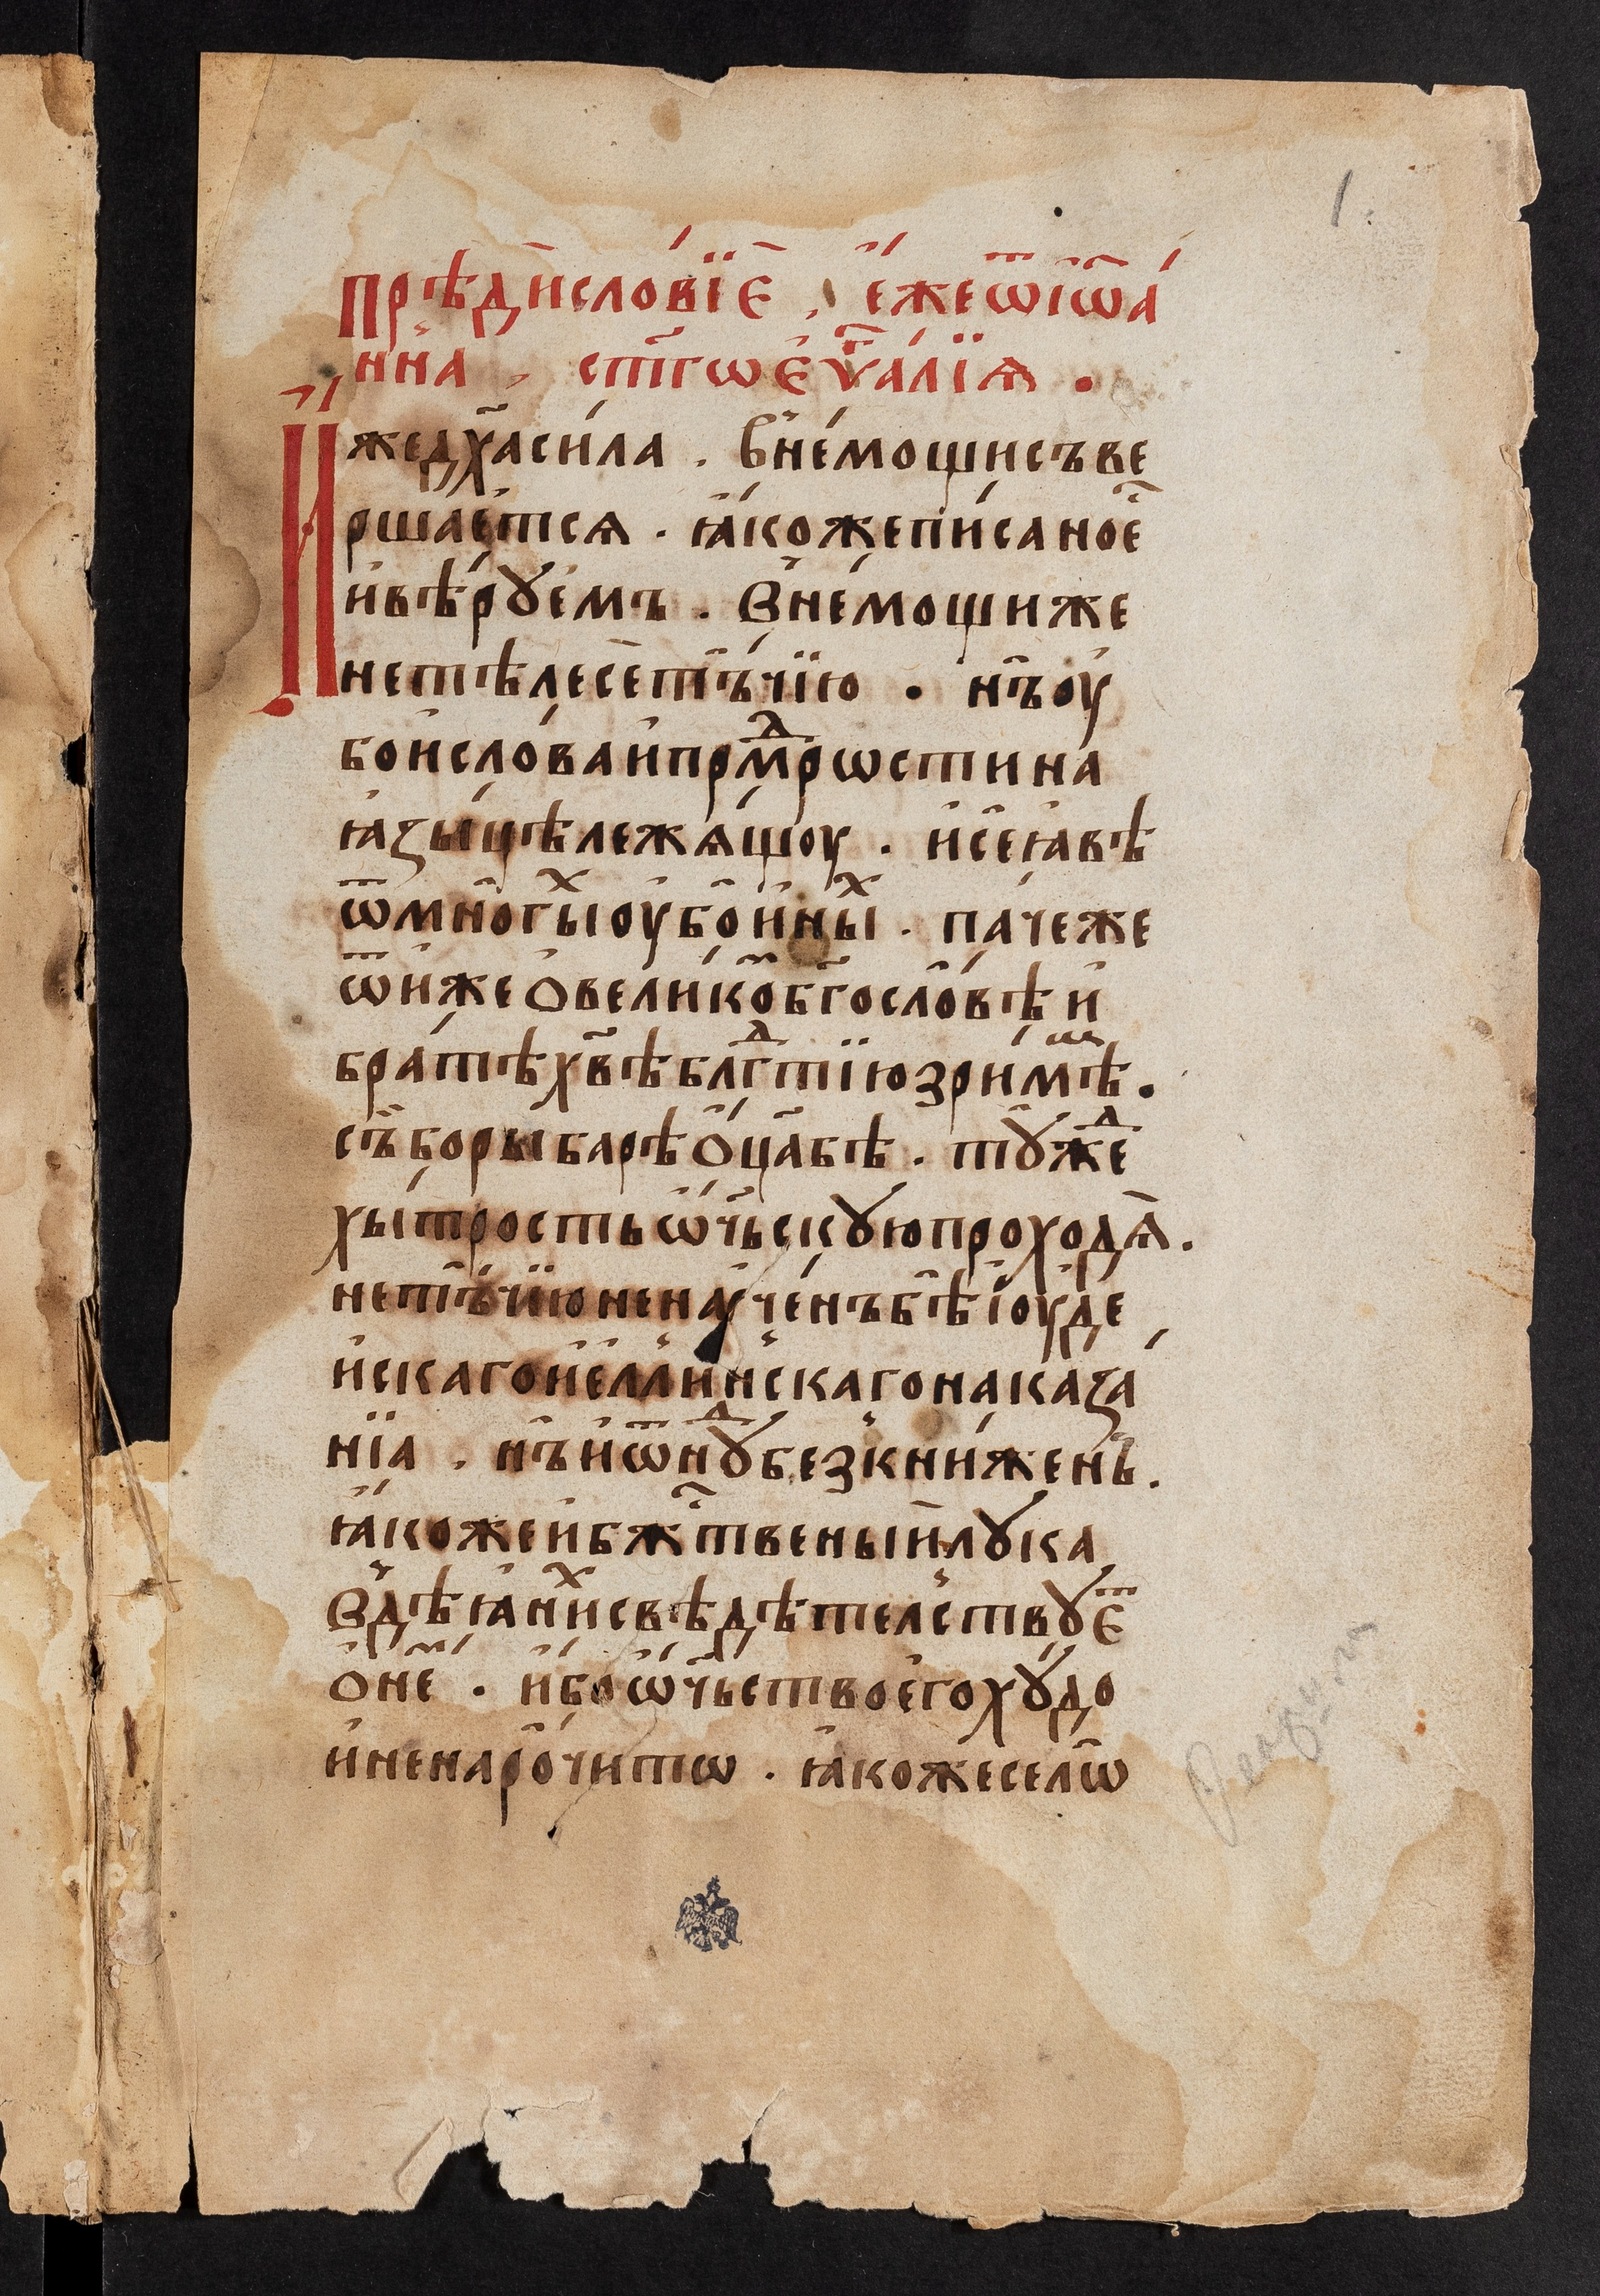 1.
прѣдисловїє , ежеѿіѡа
нна , ст҃гѡеѵⷢ҇алїꙗ .
Ижедх҃асила . внемощисъве
ршаетсѧ . ꙗкожеписаное
ивѣрꙋемъ . внемощиже
нетѣлесетъчїю . нъоу
боисловаипрмⷣрѡстина
ꙗꙁыцѣлежѧщоу . исеꙗвѣ
ѿмногыⷯоубоинныⷯ . пачеже
ѿижеовеликоб҃гословѣи
братѣхв҃ѣблⷣгтїюзримѣⷲ.
съборыбарѣоц҃абѣ . тꙋжеⷣ
хытростьѡ҃чьскꙋюпроходѧ.
нетъчїюненаученъбѣіоуде
искагоиеллинскагонаказа
нїа . нъиѿнⷣꙋбезкниженъ.
ꙗкожеибжⷭ҇твеныилꙋка
вдѣꙗниⷯсвѣдѣтелствꙋеⷮ
онеⷨ . ибоѡ҃чьствоегохꙋдо
иненарочитѡ . ꙗкожеселѡ